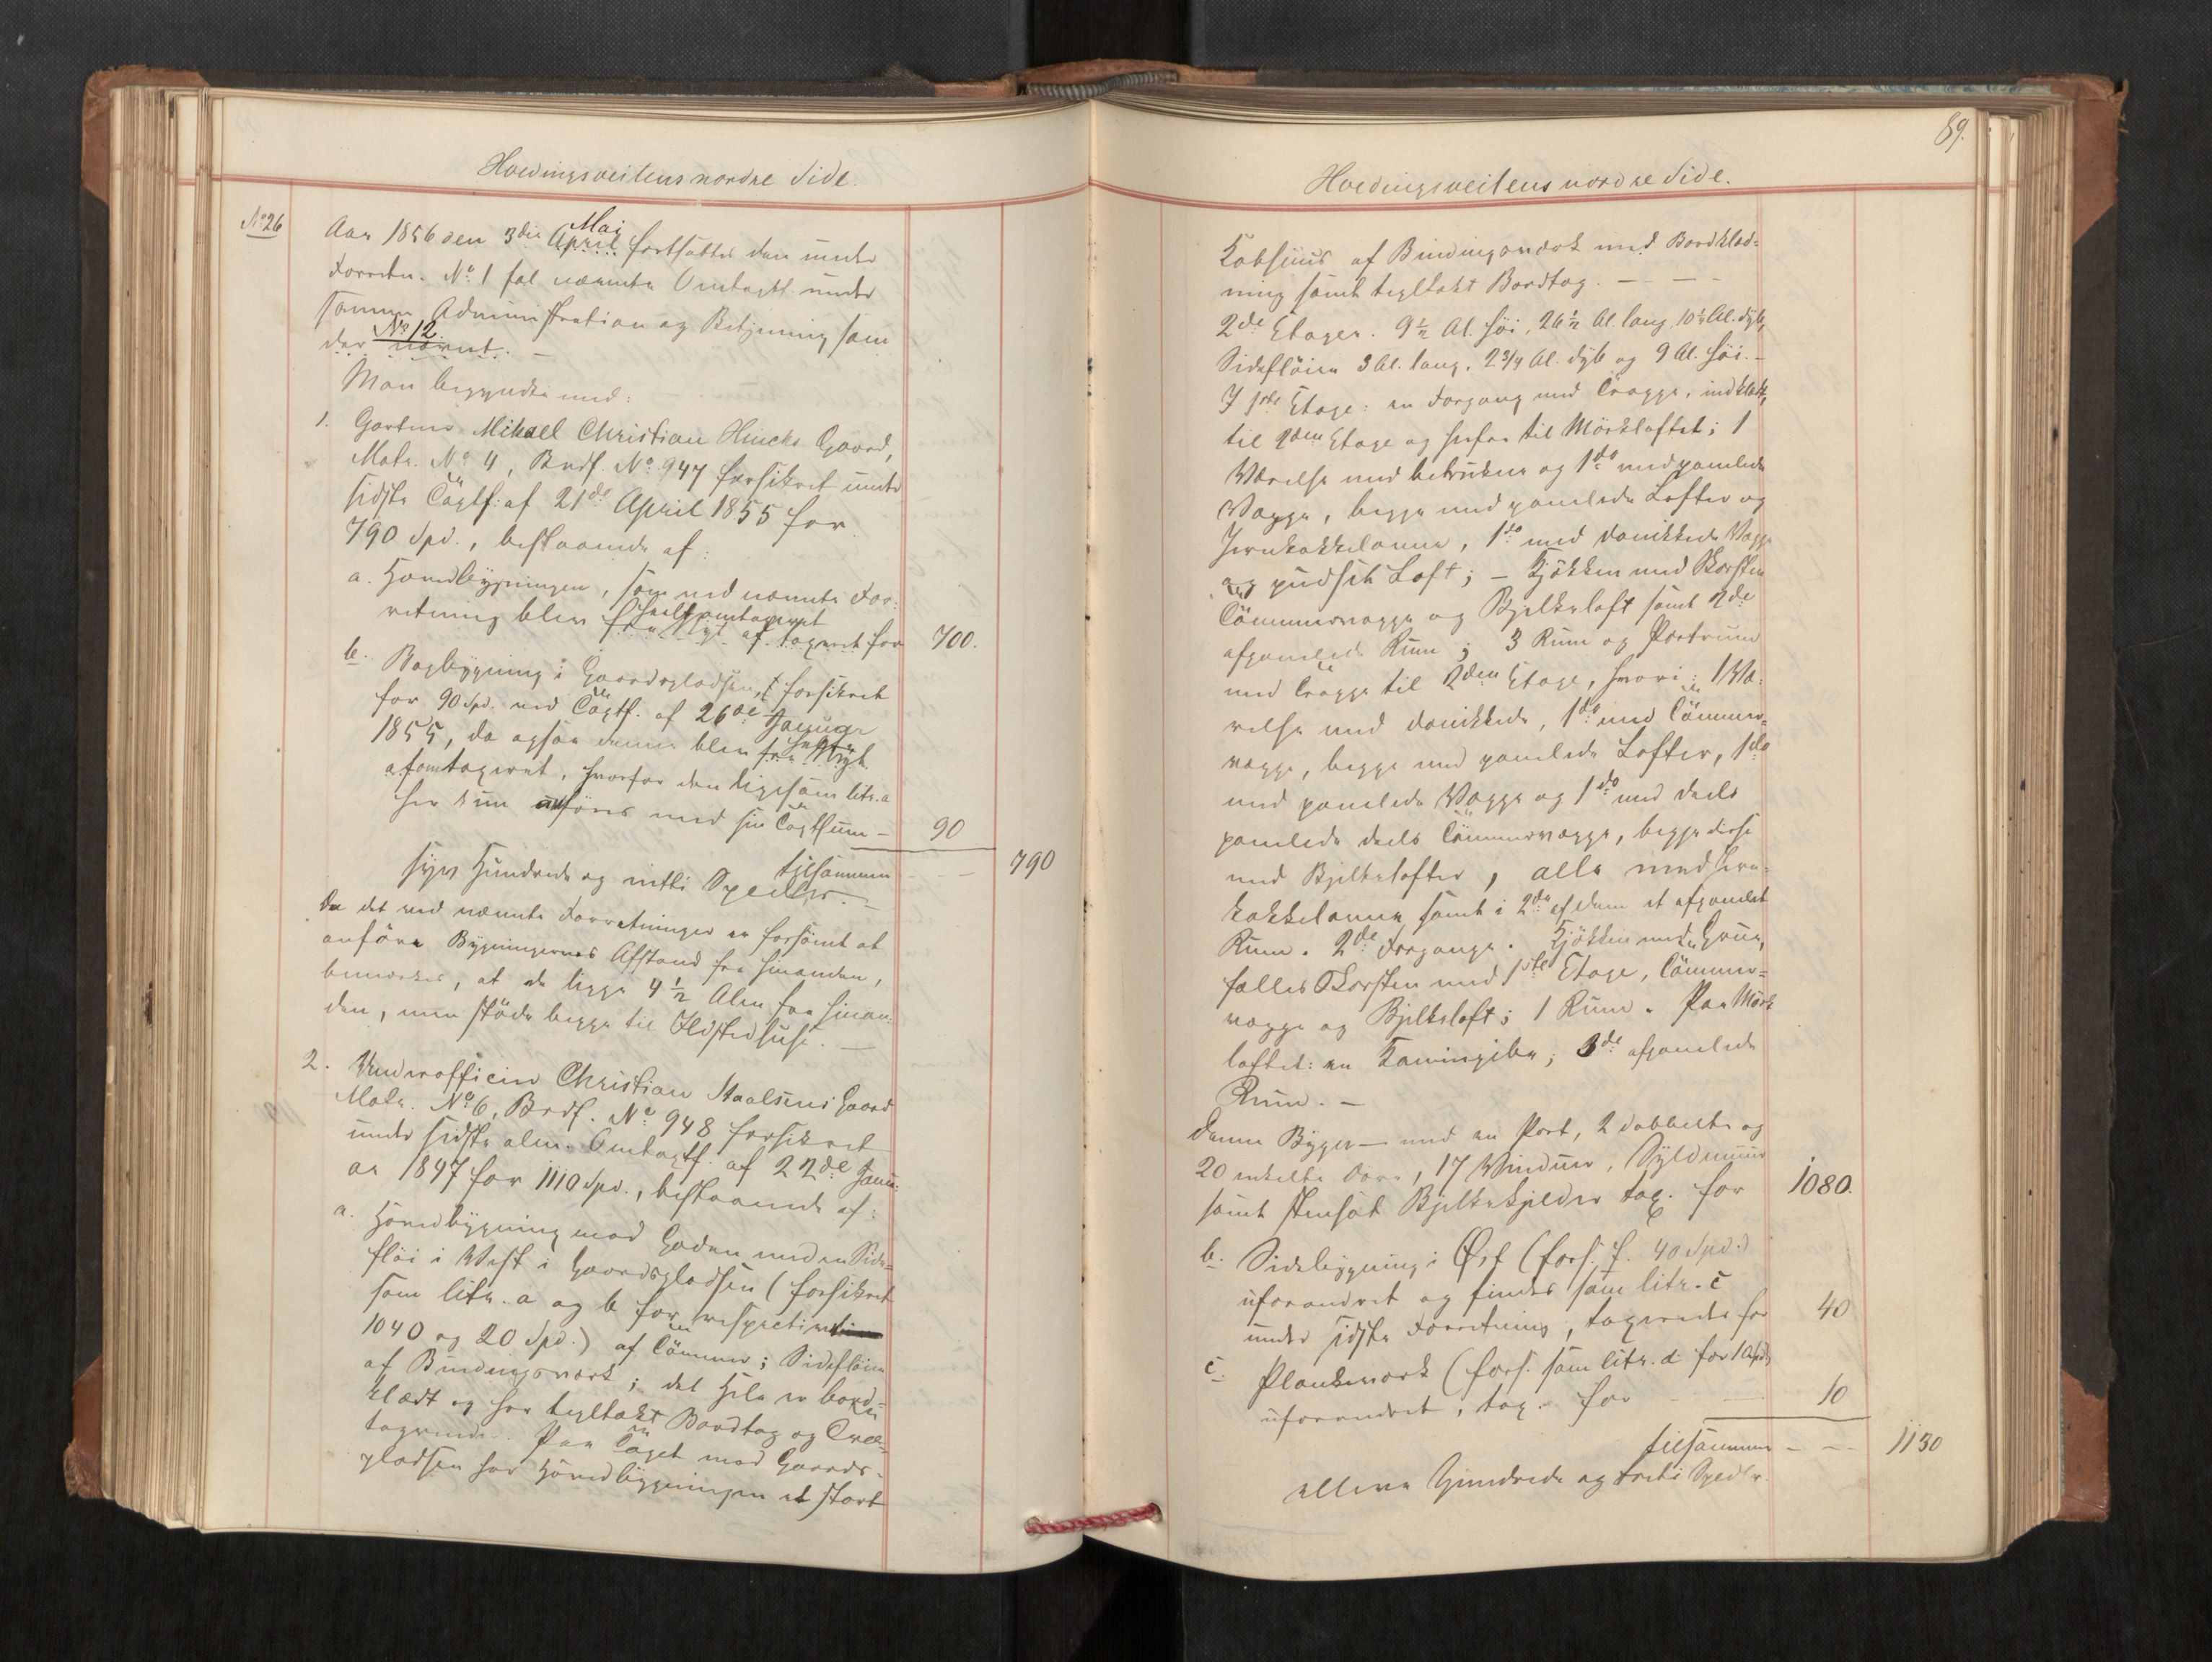 Hvedingsveitens nordre Side.
No 26
Aar 1856 den 3die April Mai fortsattes den under
Forretn. No 1 fol. nævnte Omtaxt. under
samme Administration og Betjening som
der nævnt. No 12. –
Man begyndte med:
1. Gartner Mikael Christian Hincks Gaard,
Matr. No 4, Brdf. No 947 forsikret under
sidste Taxtf. af 21de April 1855 for
790 Spd., bestaaende af:
a. Hovedbygningen, som ved nævnte For-
retning blev fra Nyt af taxeret for 700.
b. Bagbygning i Gaardspladsen, forsikret
for 90 Spd. ved Taxtf. af 26de Januar
1855, da ogsaa denne blev fra Nyt
af omtaxeret, hvorfor den ligesom litr. a
her kun anføres med sin Taxtsum – 90
tilsammen – – 790
syv Hundrede og nitti Spedlr. –
Da det ved nævnte Forretninger er forsömt at
anföre Bygningernes Afstand fra hinanden,
bemærkes, at de ligge 4 1/2 Alen fra hinan-
den, men stöde begge til Ildstedhuse. –
2. Underofficier Christian Staalsens Gaard
Matr. No 6, Brdf. No 948 forsikret
under sidste alm. Omtaxtf. af 22de Janu-
ar 1847 for 1110 Spd., bestaaende af:
a. Hovedbygning mod Gaden med en Side-
flöi i Vest i Gaardspladsen (forsikret
som litr. a og b for respective
1040 og 20 Spd.) af Tömmer; Sideflöien
af Bindingsværk; det Hele er bord-
klædt og har tegltækt Bordtag og
tagrender. Paa Taget mod Gaards-
pladsen har Hovedbygningen et stort
89.
Hvedingsveitens nordre Side.
Kobhuus af Bindingsværk med Bordklæd-
ning samt tegltækt Bordtag. – – –
2de Etager. 9 1/2 Al. höi, 26 1/2 Al. lang, 10 1/2 Al. dyb,
Sideflöien 3 Al. lang, 2 3/4 Al. dyb og 9 Al. höi. –
I 1ste Etage: en Forgang med Trappe, indklædt,
til 2den Etage og herfra til Mörkloftet; 1
Værelse med betrukne og 1do med panelede
Vægge, begge med panelede Lofter og
Jernkakkelovne, 1do med panikkede Vægge
og pudset Loft; – Kjökken med Skorsten
Tömmervægge og Bjelkeloft samt 2de
afpanelede Rum; 3 Rum og Portrum
med Trappe til 2den Etage, hvori: 1 Væ-
relse med panikkede, 1do med Tömmer-
vægge, begge med panelede Lofter, 1do
med panelede Vægge og 1do med deels
panelede deels Tömmervægge, begge disse
med Bjelkelofter, alle med Jern-
kakkelovne samt i 2de af dem et afpanelet
Rum. 2de Forgange. Kjökken med Grue,
fælles Skorsten med 1ste Etage, Tömmer-
vægge og Bjelkeloft; 1 Rum. Paa Mörk-
loftet: en Kaminpibe; 3de afpanelede
Rum. –
Denne Bygg. – med en Port, 2 dobbelte og
20 enkelte Döre, 17 Vinduer, Syldmuur
samt steensat Bjelkekjelder tax. for 1080.
b. Sidebygning i Øst (fors. f. 40 Spd.)
uforandret og findes som litr. c
under sidste Forretning, taxeredes for 40
c. Plankeværk (fors. som litr. d for 10 Spd.)
uforandret, tax. for – – 10
tilsammen – – 1130
elleve Hundrede og treti Spedlr.